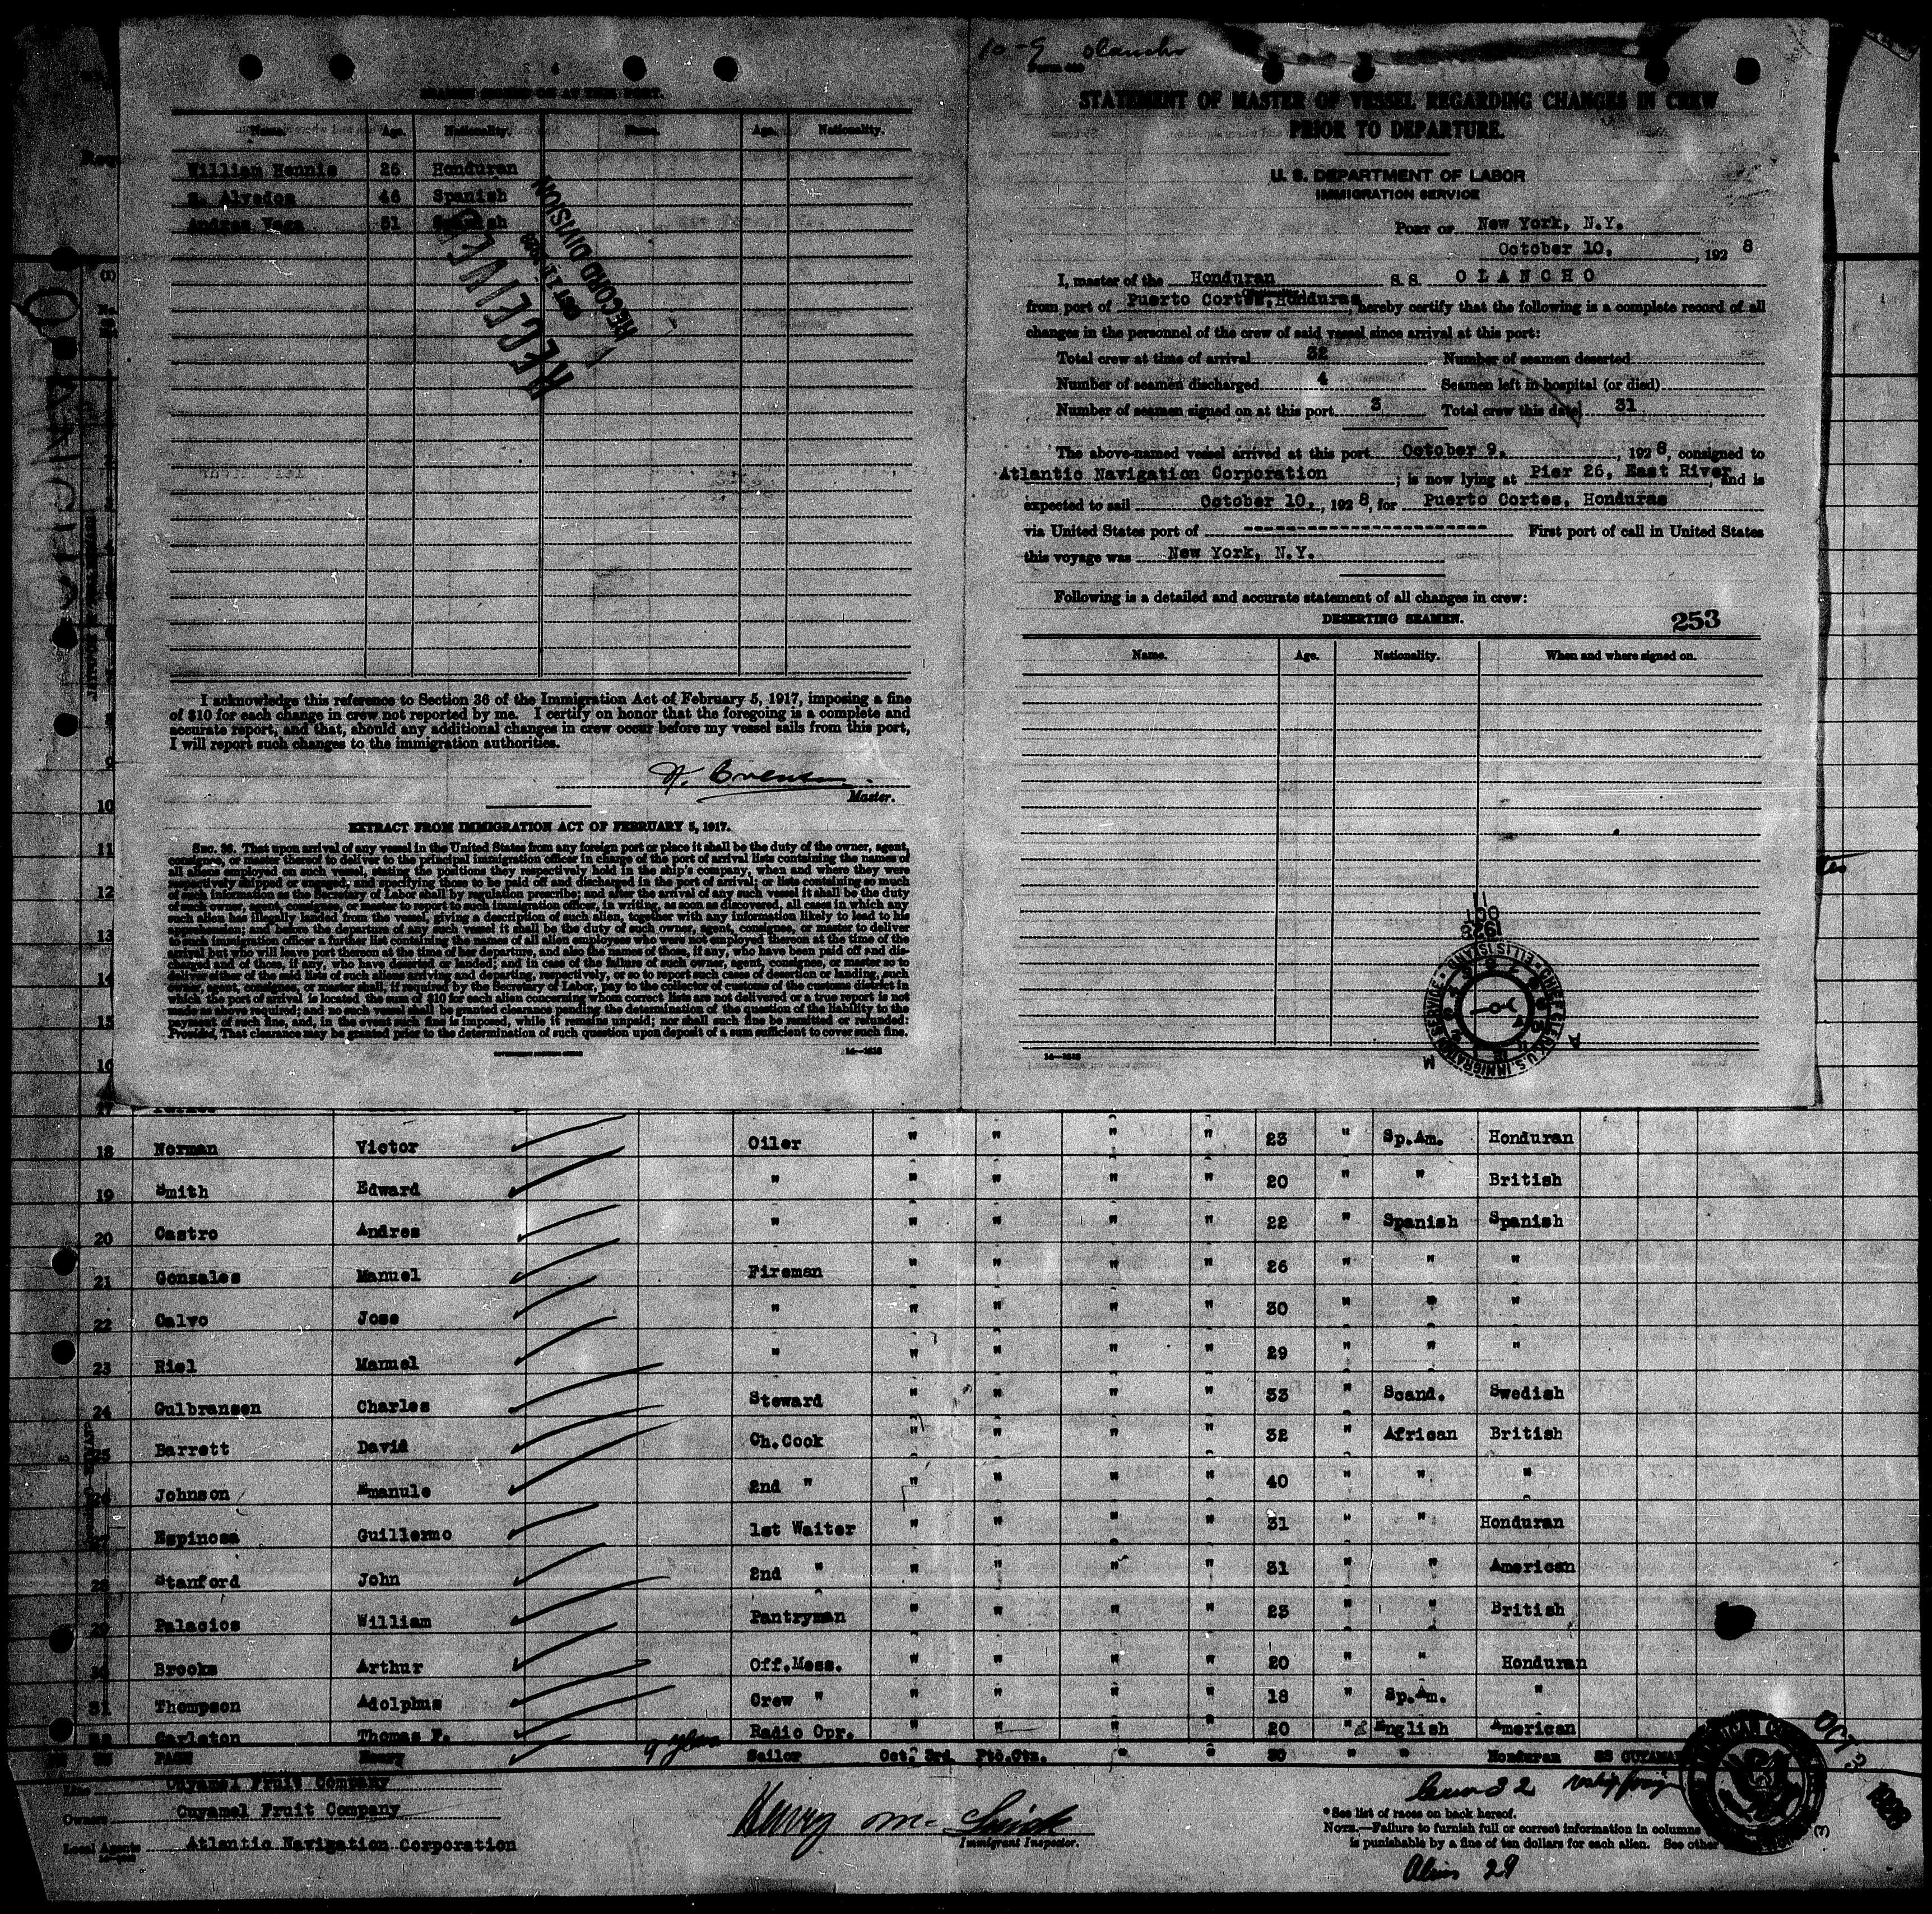 SEAMEN SIGNED ON AT THIS PORT.
Name. Age. Nationality. Name. Age. Nationality.
William Hennis 26 Honduran
Alvedon 46 Spanish
Andres Vega 31 Spanish
RECEIVED
RECORD DIVISION
I acknowledge this reference to Section 36 of the Immigration Act of February 5, 1917, imposing a fine
of $10 for each change in crew not reported by me. I certify on honor that the foregoing is a complete and
accurate report, and that, should any additional changes in crew occur before my vessel sails from this port,
I will report such changes to the immigration authorities.
Master.
EXTRACT FROM IMMIGRATION ACT OF FEBRUARY 5, 1917.
SEC. 36. That upon arrival of any vessel in the United States from any foreign port or place it shall be the duty of the owner, agent,
consignee, or master thereof to deliver to the principal immigration officer in charge of the port of arrival lists containing the names of
all aliens employed on such vessel, stating the positions they respectively hold in the ship's company, when and where they were
respectively shipped or engaged, and specifying those to be paid off and discharged in the port of arrival; or lists containing so much
of such information as the Secretary of Labor shall by regulation prescribe; and after the arrival of any such vessel it shall be the duty
of such owner, agent, consignee, or master to report to such immigration officer, in writing, as soon as discovered, all cases in which any
such alien has illegally landed from the vessel, giving a description of such alien, together with any information likely to lead to his
apprehension; and before the departure of any such vessel it shall be the duty of such owner, agent, consignee, or master to deliver
to such immigration officer a further list containing the names of all alien employees who were not employed thereon at the time of the
arrival but who will leave port thereon at the time of her departure, and also the names of those, if any, who have been paid off and dis-
charged and of those, if any, who have deserted or landed; and in case of the failure of such owner, agent, consignee, or master so to
deliver either of the said lists of such aliens arriving and departing, respectively, or so to report such cases of desertion or landing, such
owner, agent, consignee, or master shall, if required by the Secretary of Labor, pay to the collector of customs of the customs district in
which the port of arrival is located the sum of $10 for each alien concerning whom correct lists are not delivered or a true report is not
made as above required; and no such vessel shall be granted clearance pending the determination of the question of the liability to the
payment of such fine, and, in the event such fine is imposed, while it remains unpaid; nor shall such fine be remitted or refunded:
Provided, That clearance may be granted prior to the determination of such question upon deposit of a sum sufficient to cover such fine.
10-9 Olancho
STATEMENT OF MASTER OF VESSEL REGARDING CHANGES IN CREW
PRIOR TO DEPARTURE.
U. S. DEPARTMENT OF LABOR
IMMIGRATION SERVICE
PORT OF New York, N.Y.
October 10, , 192 8
I, master of the Honduran S. S. OLANCHO
from port of Puerto Cortes, Honduras, hereby certify that the following is a complete record of all
changes in the personnel of the crew of said vessel since arrival at this port:
Total crew at time of arrival 32 Number of seamen deserted
Number of seamen discharged 4 Seamen left in hospital (or died)
Number of seamen signed on at this port 3 Total crew this date 31
The above-named vessel arrived at this port October 9, , 192 8, consigned to
Atlantic Navigation Corporation ; is now lying at Pier 26, East River, and is
expected to sail October 10, , 192 8, for Puerto Cortes, Honduras
via United States port of -------------------- First port of call in United States
this voyage was New York, N.Y.
Following is a detailed and accurate statement of all changes in crew:
DESERTING SEAMEN. 253
Name. Age. Nationality. When and where signed on.
11
OCT
1928
CHIEF CLERK U.S. IMMIGRATION SERVICE · ELLIS ISLAND
10
11
12
13
14
15
16
17
18 Norman Victor Oiler " " " " 23 " Sp.Am. Honduran
19 Smith Edward " " " " " 20 " " British
20 Castro Andres " " " " " 22 " Spanish Spanish
21 Gonzales Manuel Fireman " " " " 26 " " "
22 Calvo Jose " " " " " 30 " " "
23 Riel Manuel " " " " " 29 " " "
24 Gulbransen Charles Steward " " " " 33 " Scand. Swedish
25 Barrett David Ch.Cook " " " " 32 " African British
26 Johnson Emanule 2nd " " " " " 40 " " "
27 Espinosa Guillermo 1st Waiter " " " " 31 " " Honduran
28 Stanford John 2nd " " " " " 31 " " American
29 Palacios William Pantryman " " " " 23 " " British
30 Brooks Arthur Off.Mess. " " " " 20 " " Honduran
31 Thompson Adolphus Crew " " " " " 18 " Sp.Am. "
32 Carleton Thomas F. Radio Opr. " " " " 20 " English American
PAGE Henry Sailor Oct. 3rd Pto.Ctz. " " 30 " " Honduran SS CUYAMEL
Line Cuyamel Fruit Company
Owners Cuyamel Fruit Company
Local Agents Atlantic Navigation Corporation
Immigrant Inspector.
Crew 32
* See list of races on back hereof.
NOTE.—Failure to furnish full or correct information in columns (7)
is punishable by a fine of ten dollars for each alien. See other
Aliens 29
OCT 3 1928